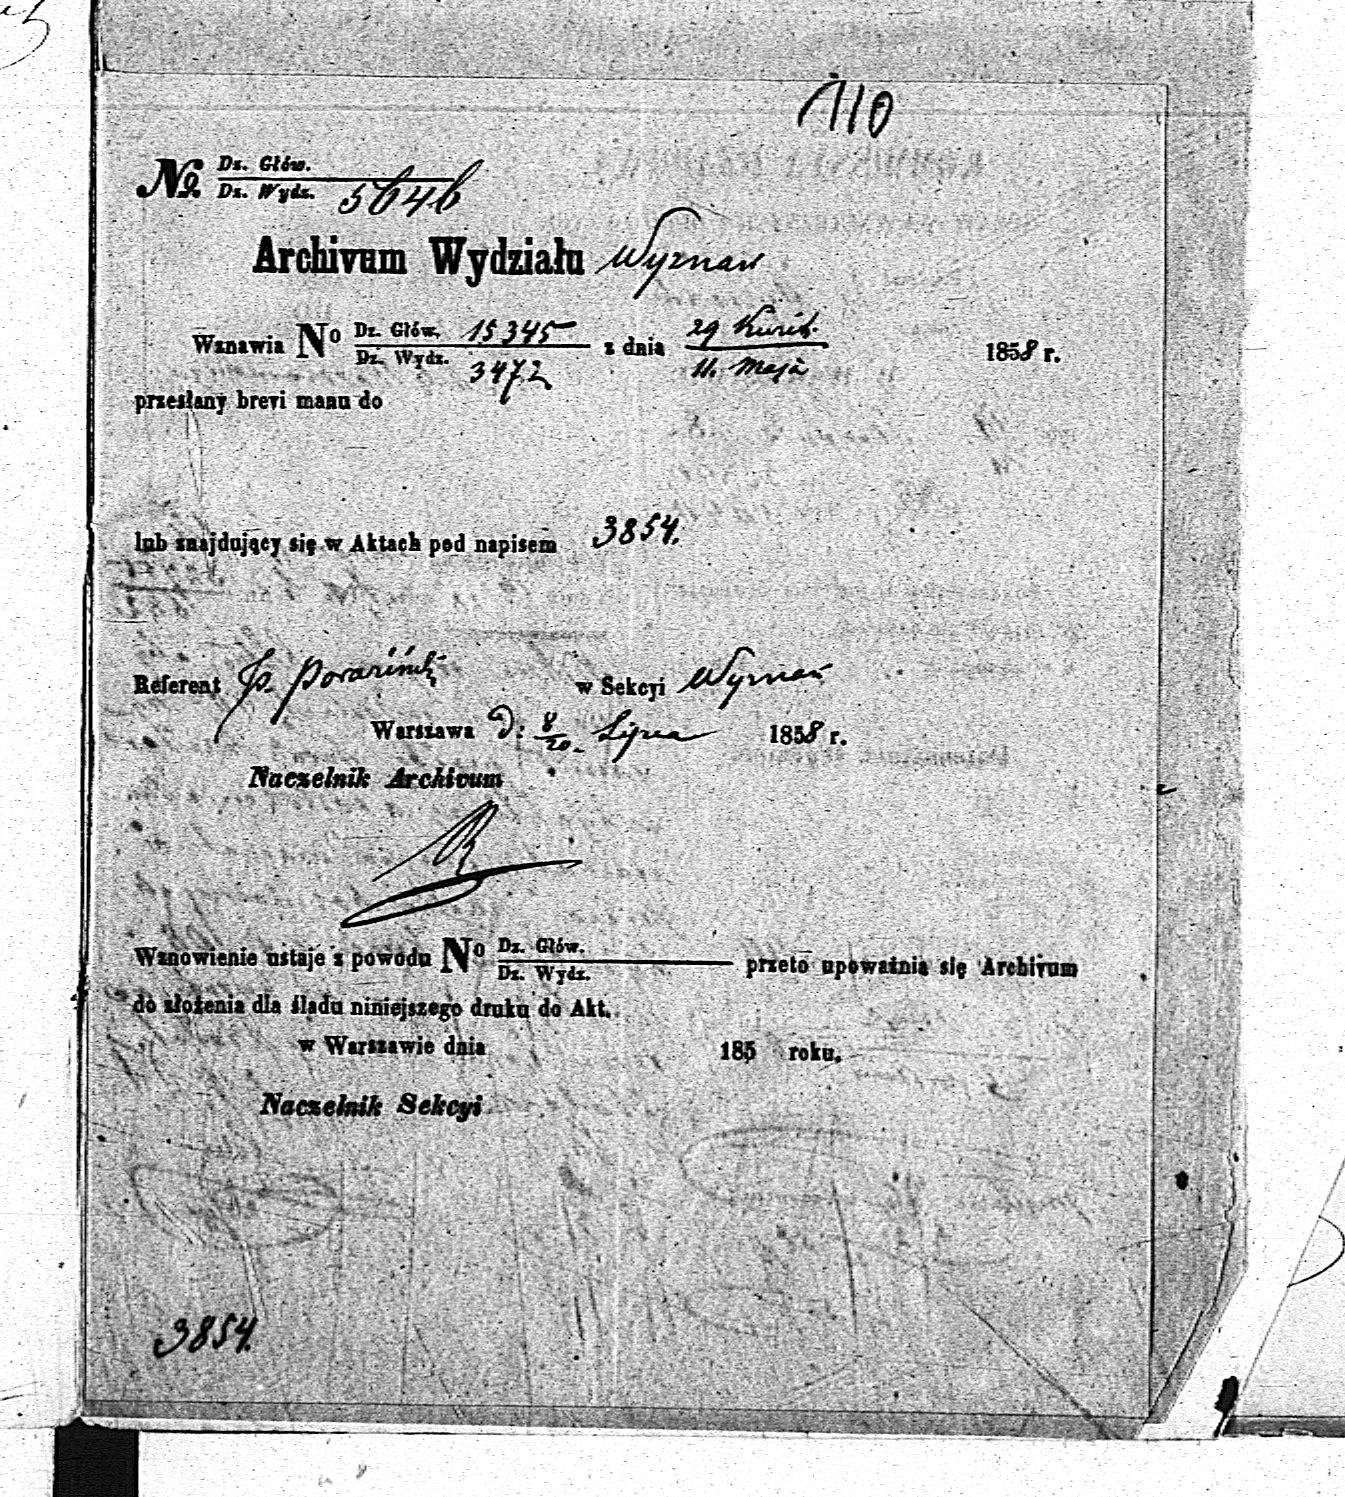 110
№ Dz. Głów.
Dz. Wydz. 5646
Archivum Wydziału Wyznań
Wznawia No Dz. Głów. 15345 z dnia 29 Kwiet. 1858 r.
Dz. Wydz. 3472 11. Maja
przesłany brevi manu do
lub znajdujący się w Aktach pod napisem 3854.
Referent w Sekcyi Wyznań
Warszawa d: 8/20. Lipca 1858 r.
Naczelnik Archivum
Wznowienie ustaje z powodu No Dz. Głów. przeto upoważnia się Archivum
Dz. Wydz.
do złożenia dla śladu niniejszego druku do Akt.
w Warszawie dnia 185 roku.
Naczelnik Sekcyi
3854.